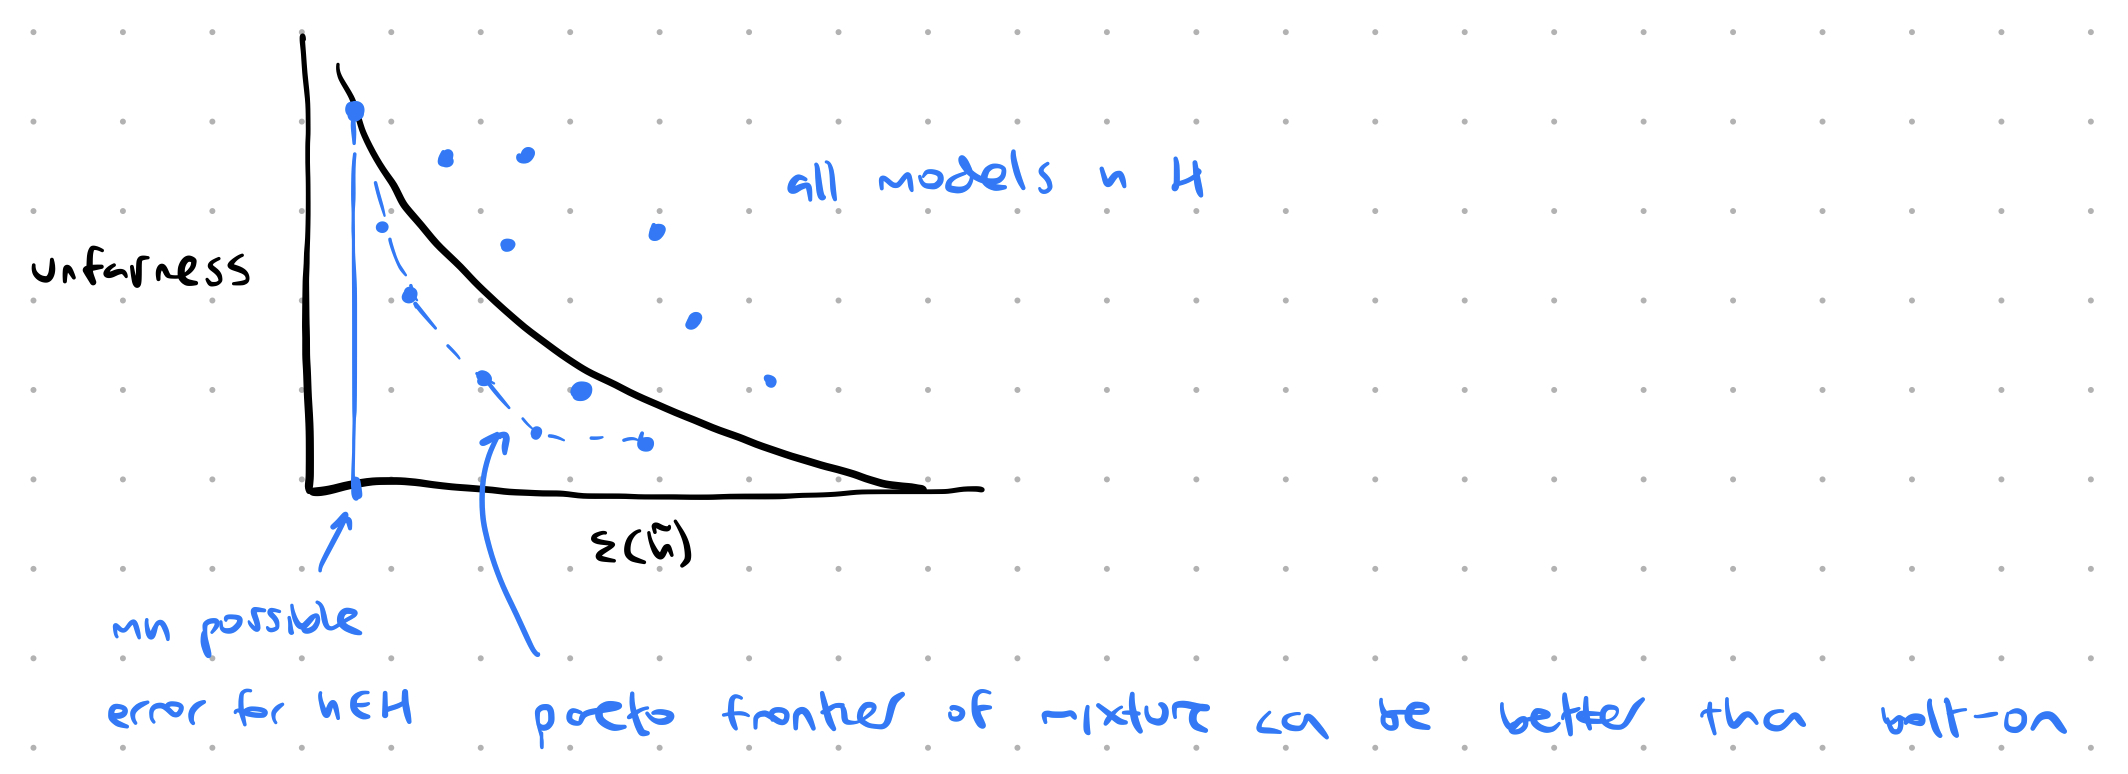 all models in H
unfairness
ε(h̃)
min possible
error for h∈H
pareto frontier of mixture can be better than bolt-on